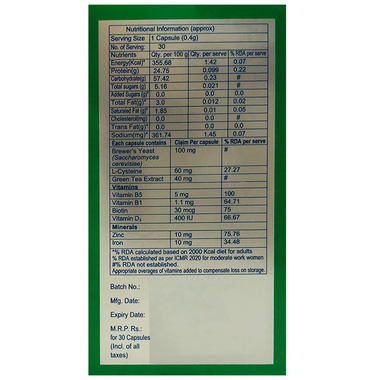 Nutritional Information (approx)
Serving Size 1 Capsule (0.4g)
No. of Serving: 30
Nutrients Qty. per 100 g Qty. per serve % RDA per serve
Energy(Kcal)* 355.68 1.42 0.07
Protein(g) 24.75 0.099 0.22
Carbohydrate(g) 57.42 0.23 #
Total sugars (g) 5.16 0.021 #
Added Sugars (g)* 0.0 0.0 0.0
Total Fat(g)* 3.0 0.012 0.02
Saturated Fat (g)* 1.85 0.01 0.05
Cholesterol(mg) 0.0 0.0 #
Trans Fat(g)* 0.0 0.0 0.0
Sodium(mg)* 361.74 1.45 0.07
Each capsule contains Claim Per capsule % RDA per serve
Brewer's Yeast 100 mg #
(Saccharomyces
cerevisiae)
L-Cysteine 60 mg 27.27
Green Tea Extract 40 mg #
Vitamins
Vitamin B5 5 mg 100
Vitamin B1 1.1 mg 64.71
Biotin 30 mcg 75
Vitamin D₂ 400 IU 66.67
Minerals
Zinc 10 mg 75.76
Iron 10 mg 34.48
*% RDA calculated based on 2000 Kcal diet for adults
% RDA established as per ICMR 2020 for moderate work women
#% RDA not established.
Appropriate overages of vitamins added to compensate loss on storage.
Batch No.:
Mfg. Date:
Expiry Date:
M.R.P Rs.:
for 30 Capsules
(Incl. of all
taxes)